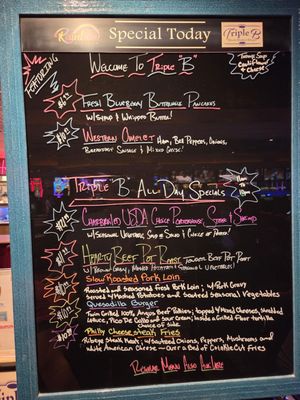 Special Today
Triple B
FEATURING
WELCOME TO TRIPLE "B"
Cauliflower
& Cheese
FRESH BLUEBERRY BUTTERMILK PANCAKES
W/SYRUP & WHIPPED BUTTER!
WESTERN OMELET HAM, BELL PEPPERS, ONIONS,
BREAKFAST SAUSAGE & MIXED CHEESE!
TRIPLE "B" ALL-DAY SPECIALS
USDA CHOICE PORTERHOUSE STEAK & SHRIMP
W/SEASONAL VEGETABLE SOUP or SALAD & CHOICE of POTATO!
HEARTY BEEF POT ROAST TENDER BEEF POT ROAST
W/BROWN GRAVY, MASHED POTATOES & SEASONAL VEGETABLES!
Slow Roasted Pork Loin
Mashed and Seasoned Fresh Pork Loin; w/Pork Gravy
Served w/Mashed Potatoes and Sauteed Seasonal Vegetables
Quesadilla Burger
Twin Grilled 100% Angus Beef Patties; topped w/Mixed Cheeses, Shredded
Lettuce, Pico De Gallo and Sour Cream; inside a Grilled Flour Tortilla
Choice of Side
Philly Cheesesteak Fries
Ribeye Steak Meat; w/Sauteed Onions, Peppers, Mushrooms and
White American Cheese - Over a Bed of Crinkle Cut Fries
REGULAR MENU ALSO AVAILABLE